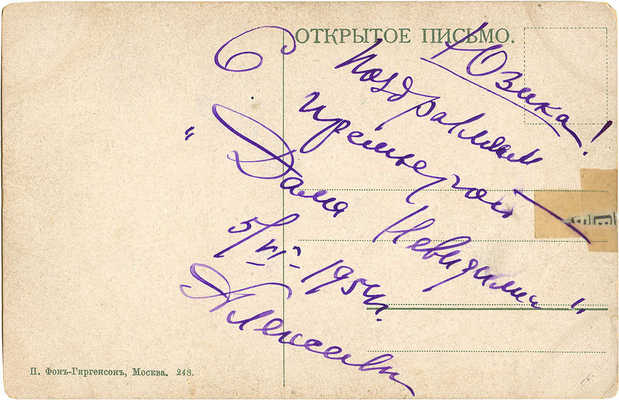 ОТКРЫТОЕ ПИСЬМО.
Юзика!
Поздравляем
С премьерой
"Дама Невидимка"
5/VI-1954г.
Алексеевы
П. Фонъ-Гиргенсонъ, Москва. 248.